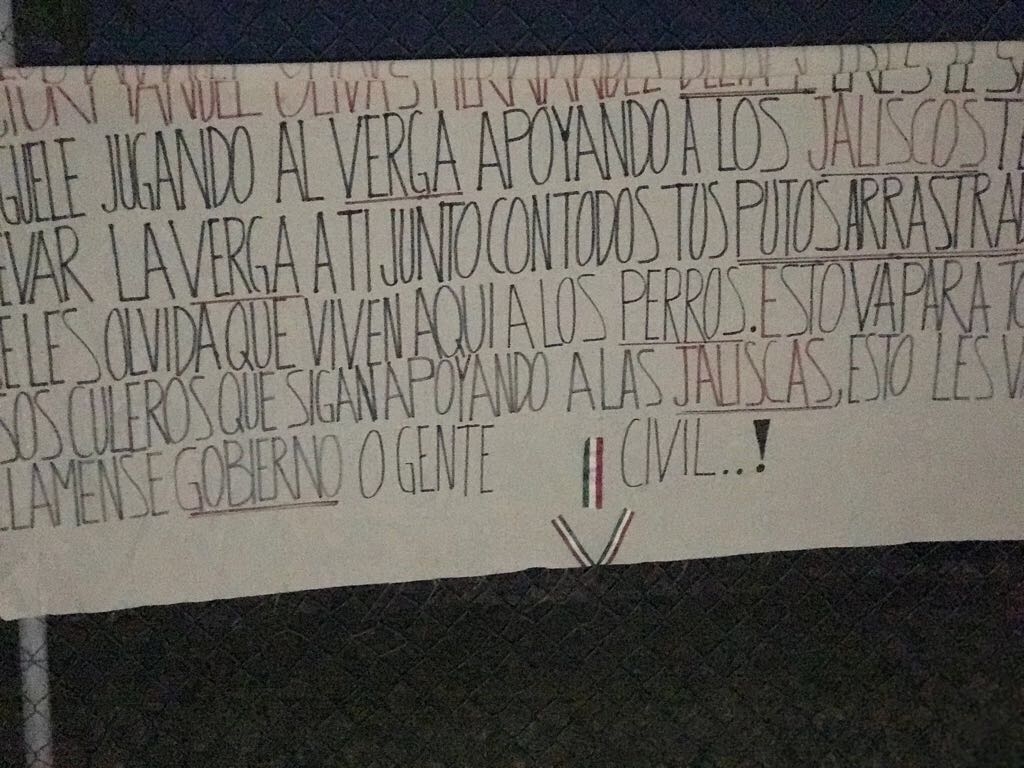 MANUEL OLIVAS HERNANDEZ ERES EL
GUELE JUGANDO AL VERGA APOYANDO A LOS JALISCOS TE
EVAR LA VERGA A TI JUNTO CON TODOS TUS PUTOS ARRASTRAD
E LES OLVIDA QUE VIVEN AQUI A LOS PERROS. ESTO VA PARA TO
SOS CULEROS QUE SIGAN APOYANDO A LAS JALISCAS, ESTO LES VA
LLAMENSE GOBIERNO O GENTE CIVIL..!